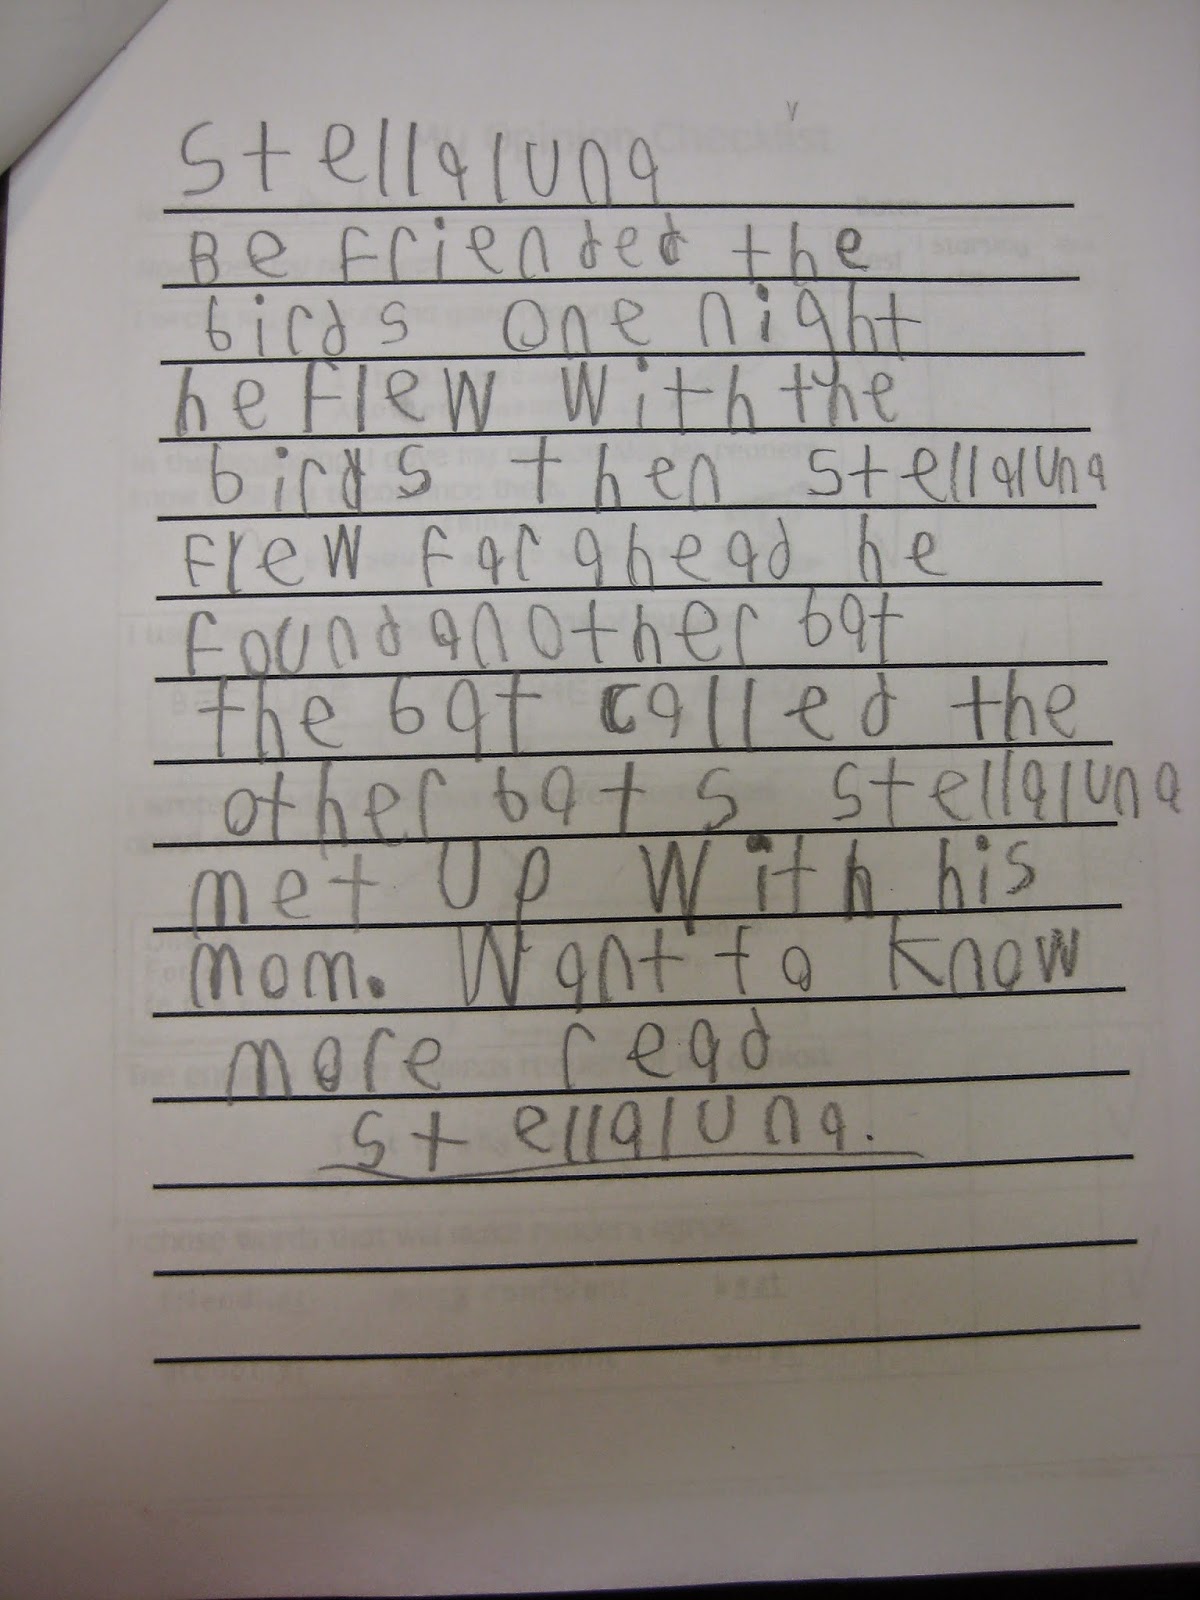 Stellaluna
Be Friended the
birds one night
he Flew With the
birds then Stellaluna
Flew Far ahead he
Found another bat
the bat called the
other bats Stellaluna
met Up With his
mom. Want to Know
more read
Stellaluna.